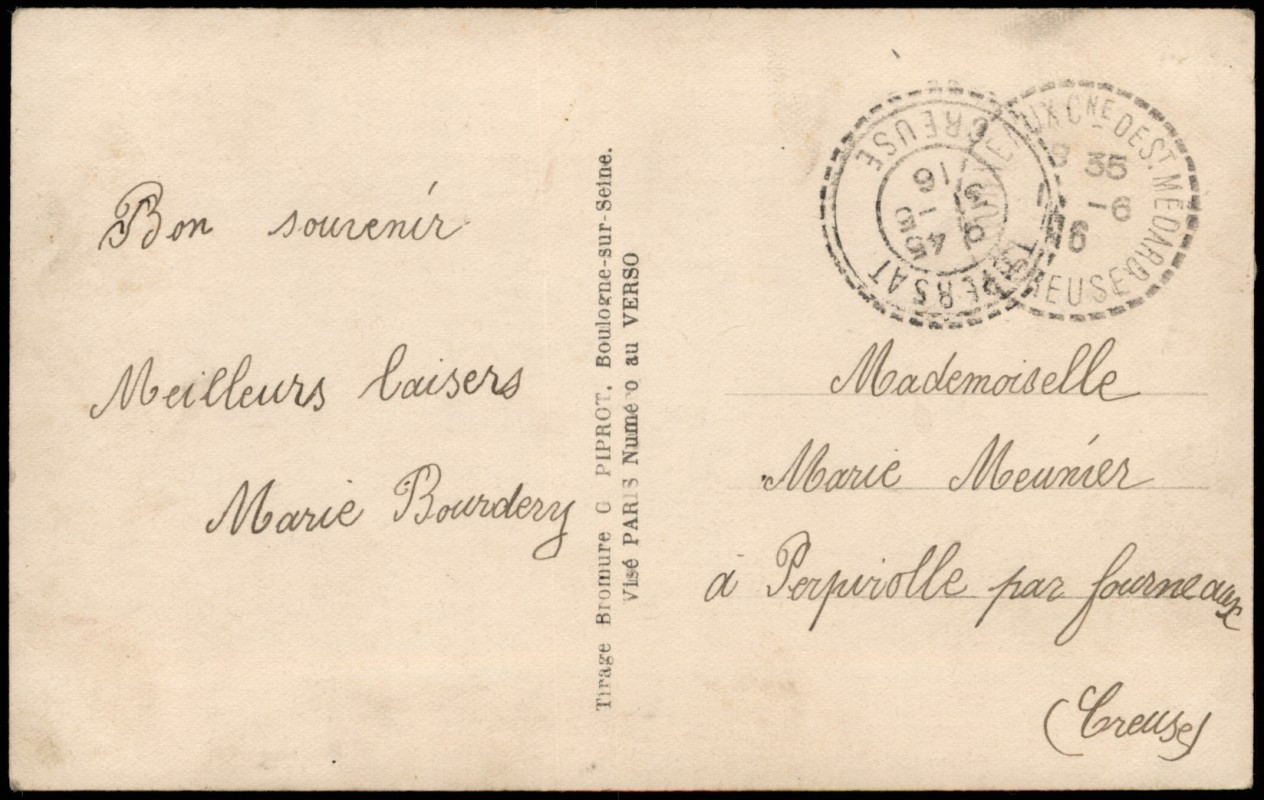 Bon souvenir
Meilleurs baisers
Marie Bourdery
Tirage Bromure G PIPROT, Boulogne-sur-Seine.
Visé PARIS Numéro au VERSO
CREUSE
45
9 - 3
16
PERSAT
AUX CNE DE ST MÉDARD
CREUSE
35
-6
16
Mademoiselle
Marie Meunier
à Perpirolle par fourneaux
(Creuse)